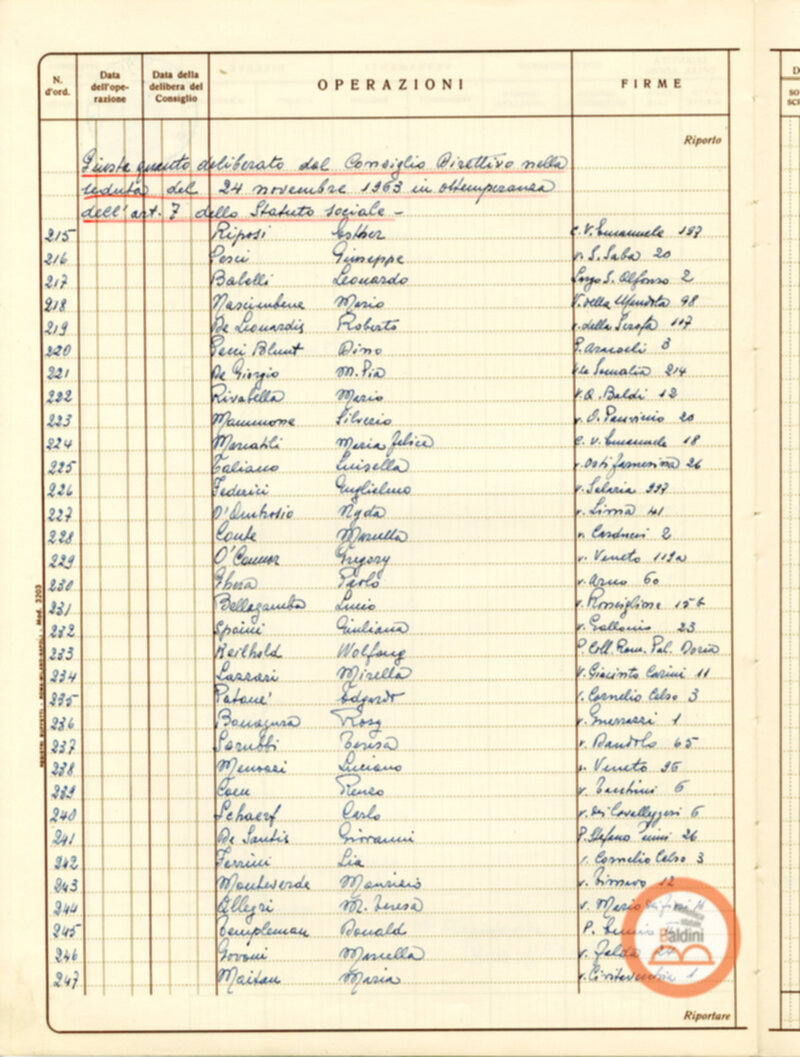 N. d'ord.
Data dell'ope- razione
Data della delibera del Consiglio
OPERAZIONI
FIRME
Riporto
Giusta quanto deliberato dal Consiglio Direttivo nella
seduta del 24 novembre 1963 in ottemperanza
dell'art. 7 dello Statuto sociale -
215 Riposi Esther c. V. Emanuele 197
216 Pesci Giuseppe v. S. Saba 20
217 Babelli Leonardo Largo S. Alfonso 2
218 Nascimbene Mario V. della Mendola 98
219 De Leonardis Roberto v. della Scrofa 117
220 Pecci Blunt Dino P. Aracoeli 3
221 De Giorgio M. Pia v.le Somalia 214
222 Rivabella Mario v. B. Baldi 12
223 Mammone Silverio v. O. Panvinio 20
224 Maria Felice c. v. Emanuele 18
225 Taliano Luisella v. Orti farnesina 26
226 Federici Guglielmo v. Salaria
227 D'Ambrosio Nyda v. Lima 41
228 Conte Marella v. Carducci 2
229 O'Connor Gregory v. Veneto 119a
230 Paolo v. Arno 60
231 Bellagamba Lucio v. Ronciglione 15
232 Spaini Giuliana v. Gallonio 23
233 Reilhold Wolfang P. Coll. Rom. Pal. Doria
234 Lazzari Mirella V. Giacinto Carini 11
235 Patanè Edgardo v. Cornelio Celso 3
236 Bonagura Rosy v. Guerrazzi 1
237 Sarubbi Teresa v. Dandolo 65
238 Luciano v. Veneto 96
239 Coen Renzo v. Tacchini 6
240 Schaerf Carlo v. dei Cavalleggeri 6
241 De Santis Giovanni P. Stefano 26
242 Ferrini Lia v. Cornelio Celso 3
243 Monteverde Maurizio v. Timavo 12
244 Allegri M. Teresa v. Mario
245 Templeman Donald P.
246 Govoni Marcella v.
247 Maitan Maria v. Civitavecchia 1
Baldini
Riportare
Mod. 3203